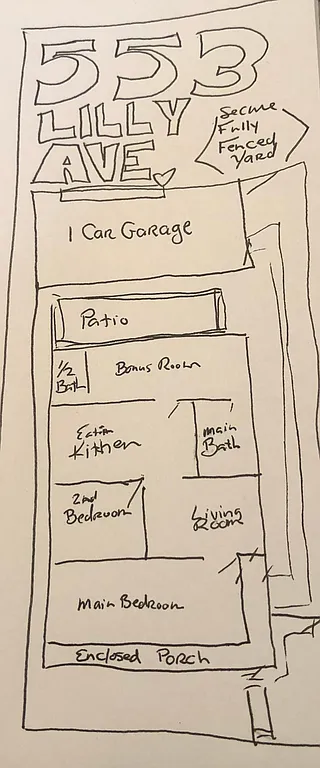 553
LILLY
AVE.
Secure
Fully
Fenced
Yard
1 Car Garage
Patio
1/2
Bath
Bonus Room
Eat in
Kithen
main
Bath
2nd
Bedroom
Living
Room
Main Bedroom
Enclosed Porch